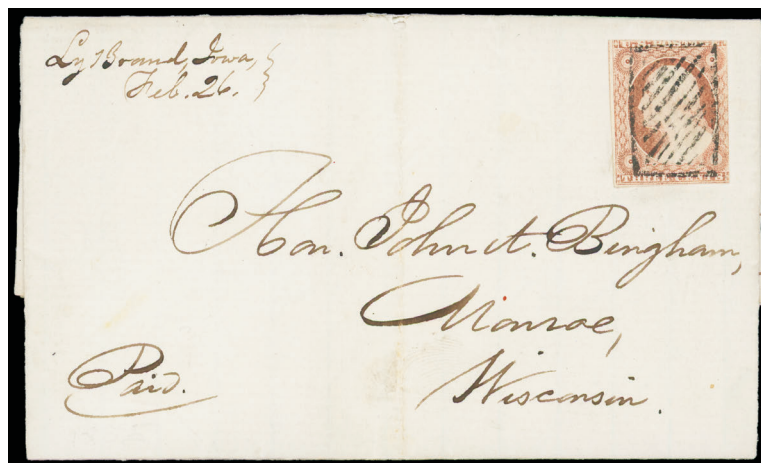 Lybrand, Iowa,
Feb. 26.
Hon. John A. Bingham,
Monroe,
Wisconsin.
Paid.